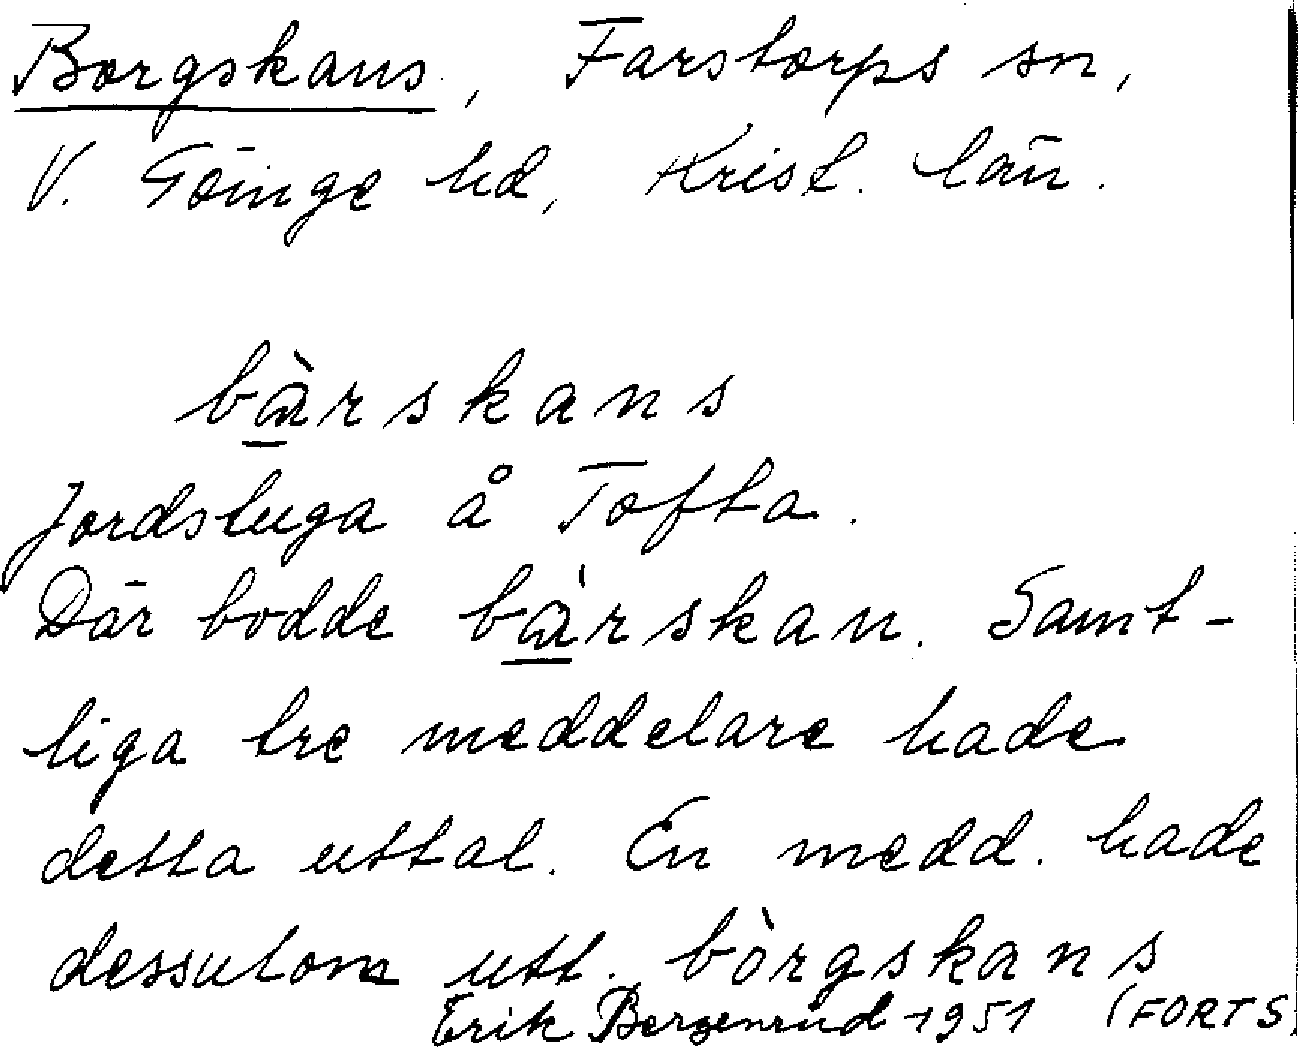 Borgskans, Farstorps sn,
V. Göinge hd, Krist. län.
bàrskans
Jordstuga å Tofta.
Där bodde bàrskan. Samt-
liga tre meddelare hade
detta uttal. En medd. hade
dessutom utt. bòrgskans
Erik Bergenrud 1951 (FORTS.